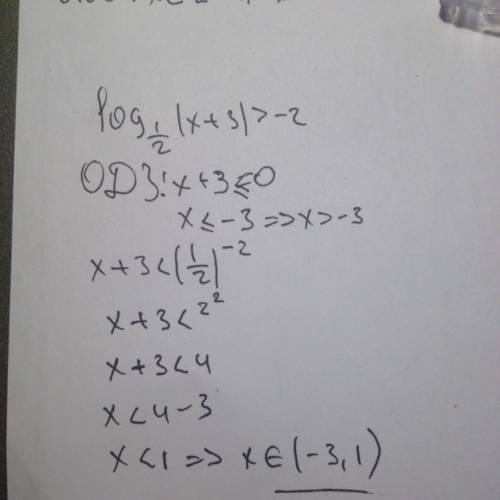 log_{1/2} (x+3) > -2
ОДЗ: x+3 ≤ 0
x ≤ -3 => x > -3
x+3 < (1/2)^{-2}
x+3 < 2^2
x+3 < 4
x < 4-3
x < 1 => x ∈ (-3, 1)